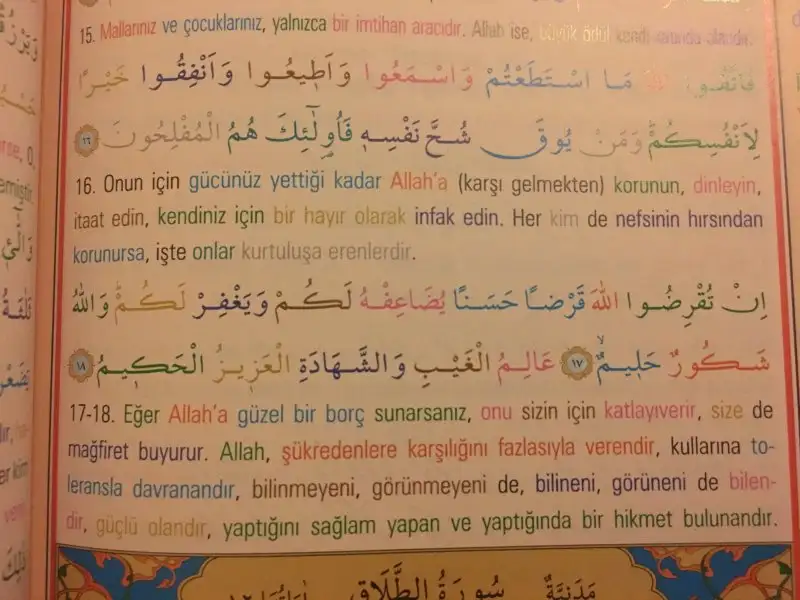 15. Mallarınız ve çocuklarınız, yalnızca bir imtihan aracıdır. Allah ise, büyük ödül kendi katında olandır.
فَاتَّقُوا اللّٰهَ مَا اسْتَطَعْتُمْ وَاسْمَعُوا وَاَط۪يعُوا وَاَنْفِقُوا خَيْرًا
لِاَنْفُسِكُمْۜ وَمَنْ يُوقَ شُحَّ نَفْسِه۪ فَاُو۬لٰٓئِكَ هُمُ الْمُفْلِحُونَ ١٦
16. Onun için gücünüz yettiği kadar Allah'a (karşı gelmekten) korunun, dinleyin,
itaat edin, kendiniz için bir hayır olarak infak edin. Her kim de nefsinin hırsından
korunursa, işte onlar kurtuluşa erenlerdir.
اِنْ تُقْرِضُوا اللّٰهَ قَرْضًا حَسَنًا يُضَاعِفْهُ لَكُمْ وَيَغْفِرْ لَكُمْۜ وَاللّٰهُ
شَكُورٌ حَل۪يمٌۙ ١٧ عَالِمُ الْغَيْبِ وَالشَّهَادَةِ الْعَز۪يزُ الْحَك۪يمُ ١٨
17-18. Eğer Allah'a güzel bir borç sunarsanız, onu sizin için katlayıverir, size de
mağfiret buyurur. Allah, şükredenlere karşılığını fazlasıyla verendir, kullarına to-
leransla davranandır, bilinmeyeni, görünmeyeni de, bilineni, görüneni de bilen-
dir, güçlü olandır, yaptığını sağlam yapan ve yaptığında bir hikmet bulunandır.
سُورَةُ الطَّلَاقِ مَدَنِيَّةٌ